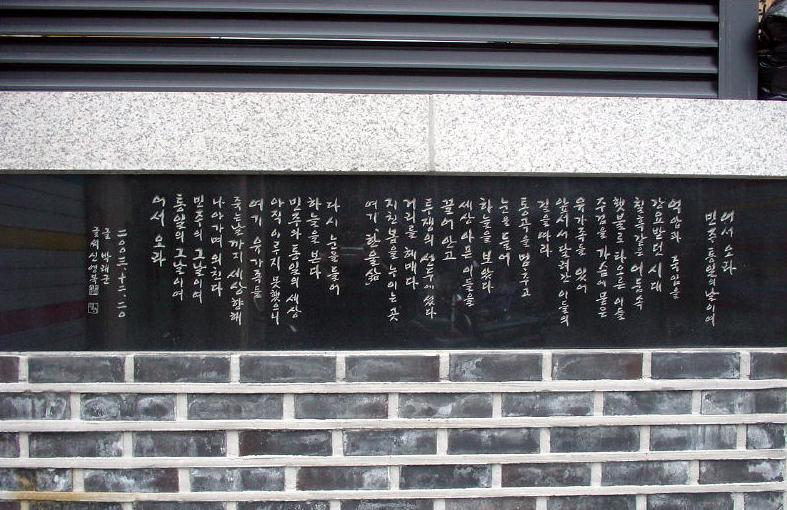 어서 오라
민주, 통일의 날이여
억압과 죽임을
강요받던 시대
칠흑같은 어둠속
횃불로 타오른 이들
주검을 가슴에 묻은
앞서서 달려간 이들의
길을 따라
통곡을 멈추고
눈을 들어
하늘을 보았다
세상 아픈 이들을
끌어 안고
투쟁의 선두에 섰다
거리를 헤매다
지친 몸을 누이는 곳
여기, 한울삶
다시 눈을 들어
하늘을 본다
민주와 통일의 세상
아직 이르지 못했으니
여기 유가족들
죽는 날까지 세상 향해
나아가며 외친다
민주의 그날이여
통일의 그날이여
어서 오라
二〇〇三. 十二. 二〇
글 박래군
글씨 신영복